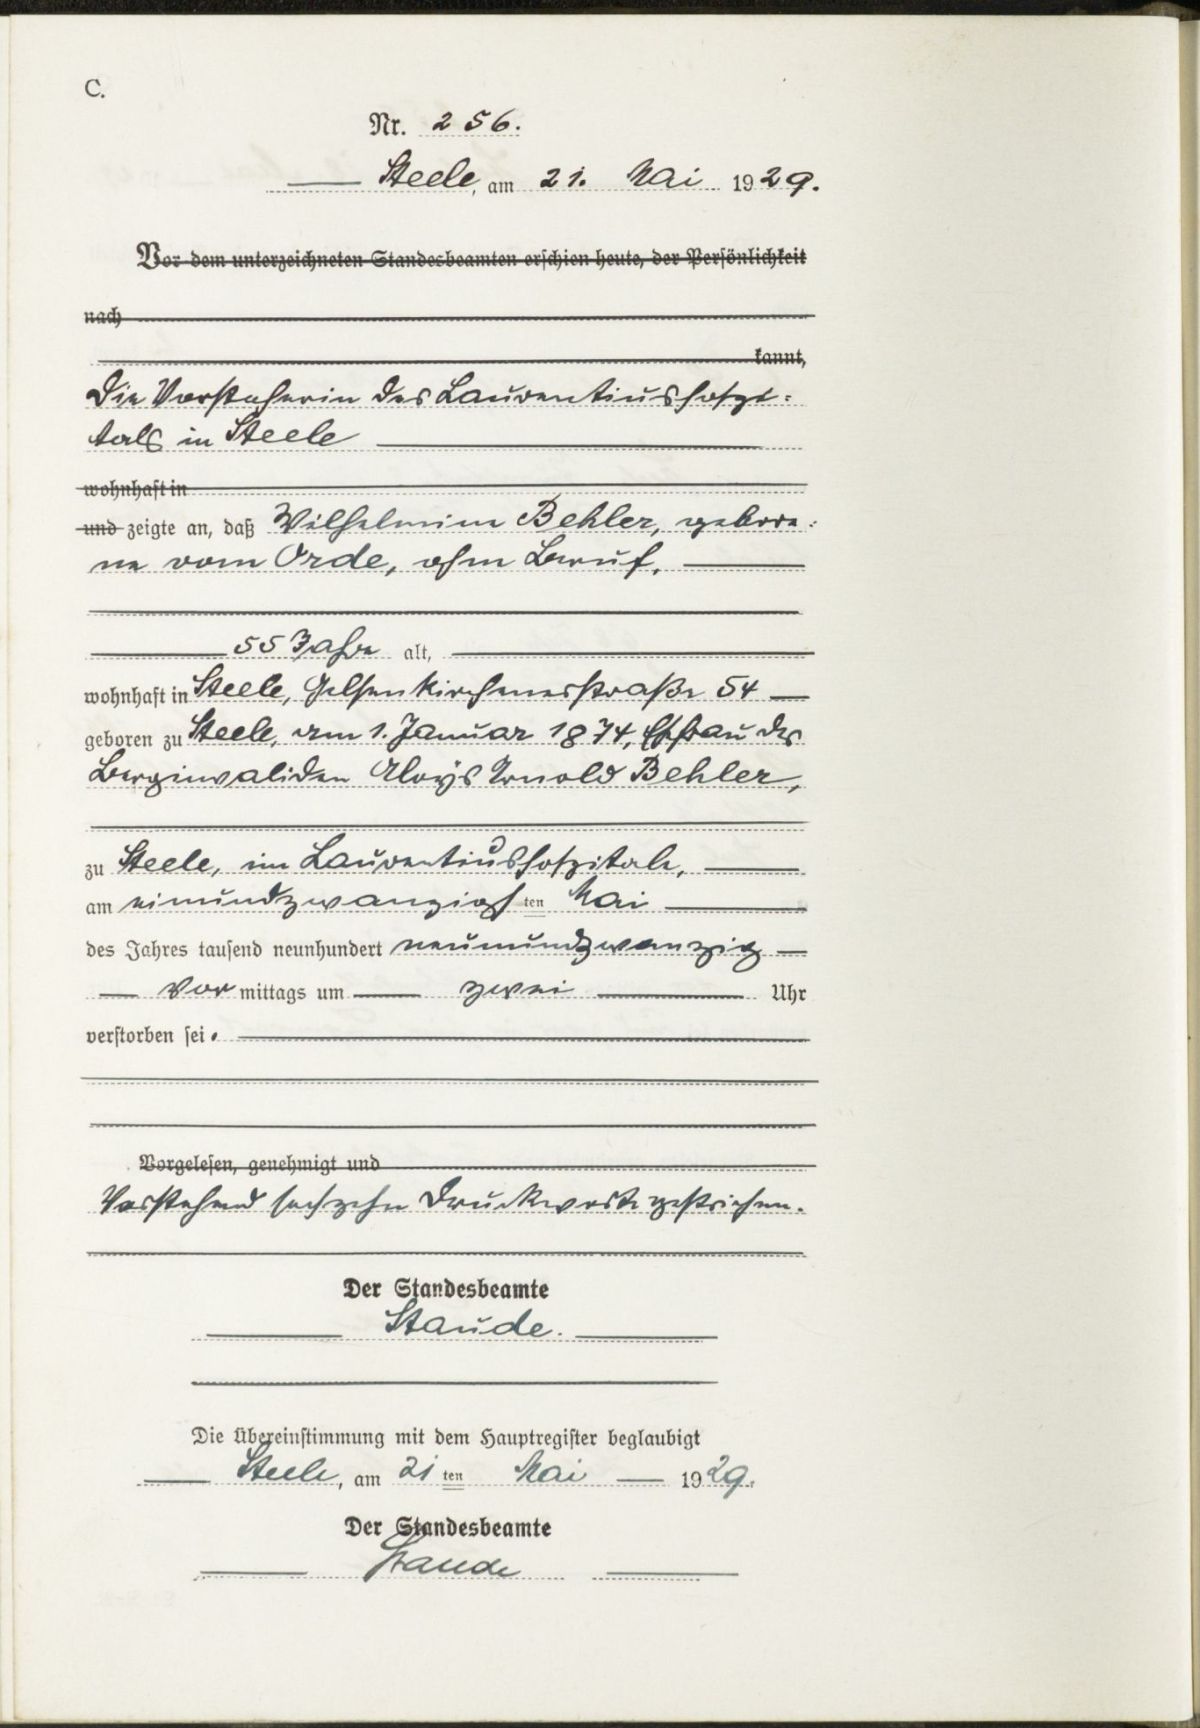 C.
Nr. 256.
Steele, am 21. Mai 1929.
Vor dem unterzeichneten Standesbeamten erschien heute, der Persönlichkeit
nach
kannt,
Die Vorsteherin des Laurentiushospi-
tals in Steele
wohnhaft in
und zeigte an, daß Wilhelmine Behler, gebore-
ne vom Orde, ohne Beruf,
55 Jahre alt,
wohnhaft in Steele, Gelsenkirchenerstraße 54
geboren zu Steele, am 1. Januar 1874, Ehefrau des
Berginvaliden Aloys Arnold Behler,
zu Steele, im Laurentiushospitale,
am einundzwanzigsten Mai
des Jahres tausend neunhundert neunundzwanzig
Vormittags um zwei Uhr
verstorben sei.
Vorgelesen, genehmigt und
Vorstehend sechzehn Druckworte gestrichen.
Der Standesbeamte
Staude.
Die Übereinstimmung mit dem Hauptregister beglaubigt
Steele, am 21ten Mai 1929.
Der Standesbeamte
Staude